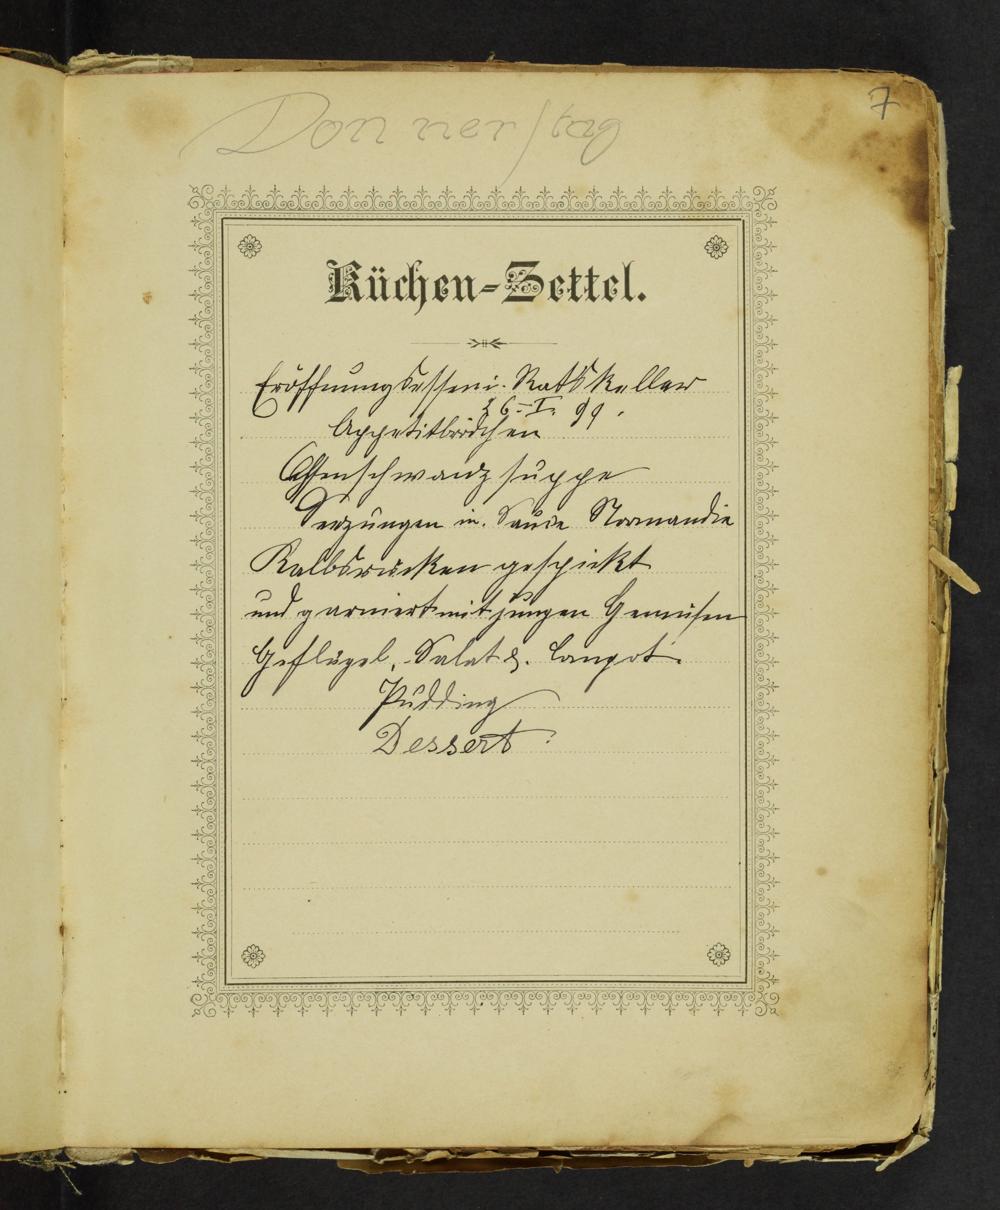 7
Donnerstag
Küchen-Zettel.
Eröffnungsessen i. Ratskeller
26-I. 99.
Appetitbrödchen
Ochsenschwanzsuppe
Seezungen in. Sauce Normandie
Kalbsrücken gespickt
und garniert mit jungen Gemüsen
Geflügel, Salat &. Compot.
Pudding
Dessert.